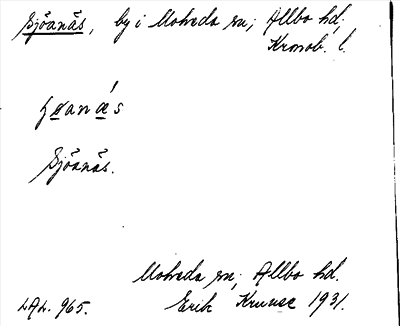 Sjöanäs, by i Moheda sn; Allbo hd.
Kronob. l.
ɧøanǽs
Sjöanäs.
Moheda sn; Allbo hd.
LAL. 965. Erik Kruuse 1931.